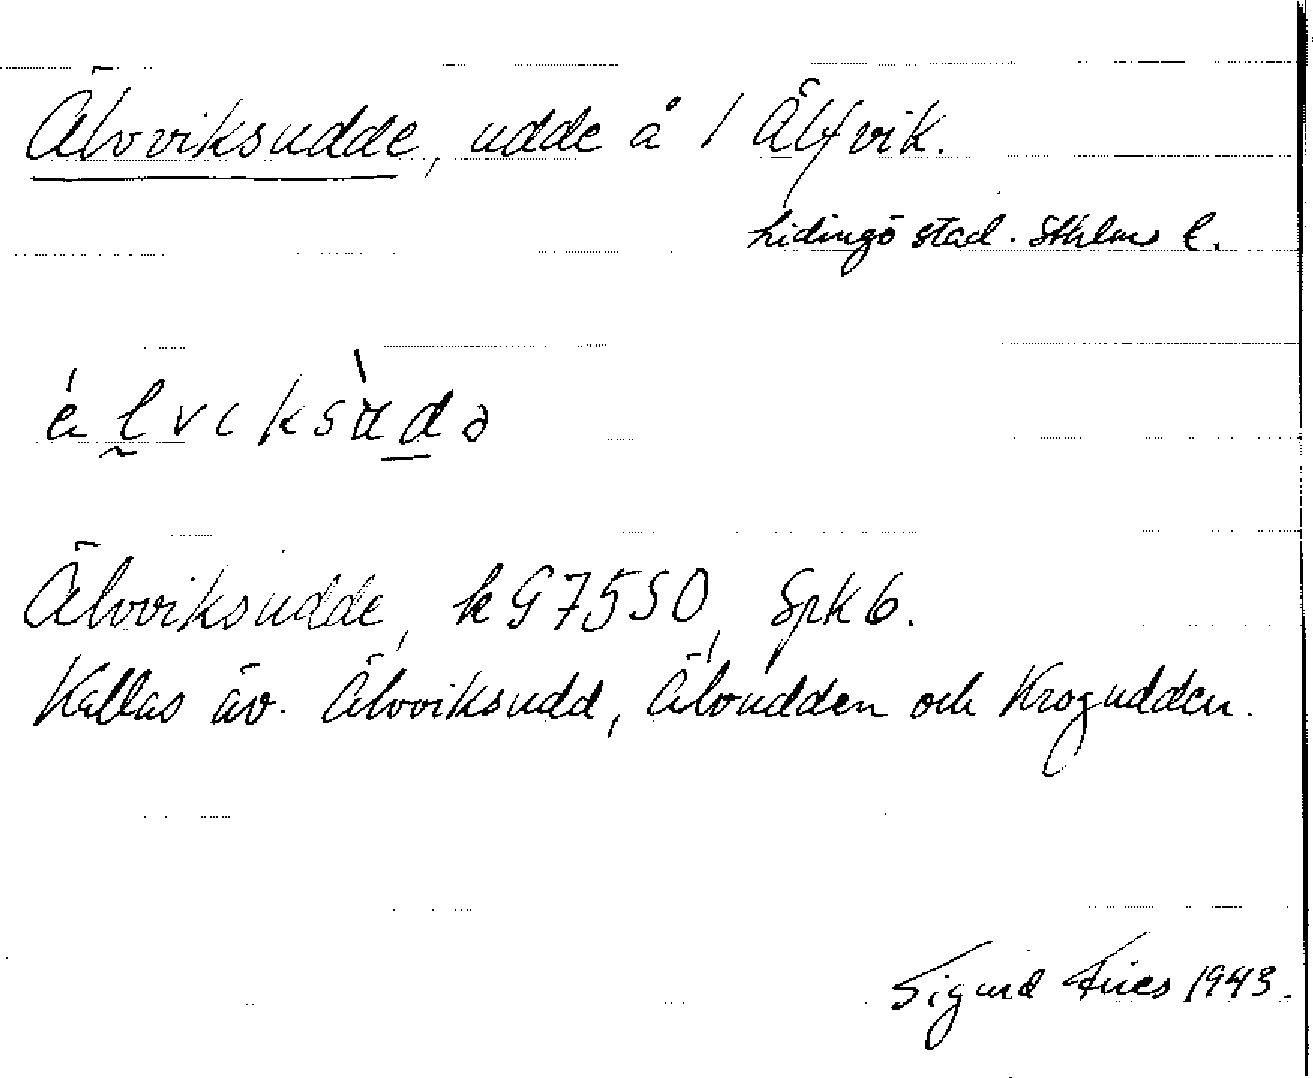 Älvviksudde, udde å 1 Älfvik.
Lidingö stad. Sthlms l.
Älvviksudde, k 97550, Spk 6.
Kallas äv. Älvviksudd, Älvudden och Krogudden.
Sigurd Fries 1943.